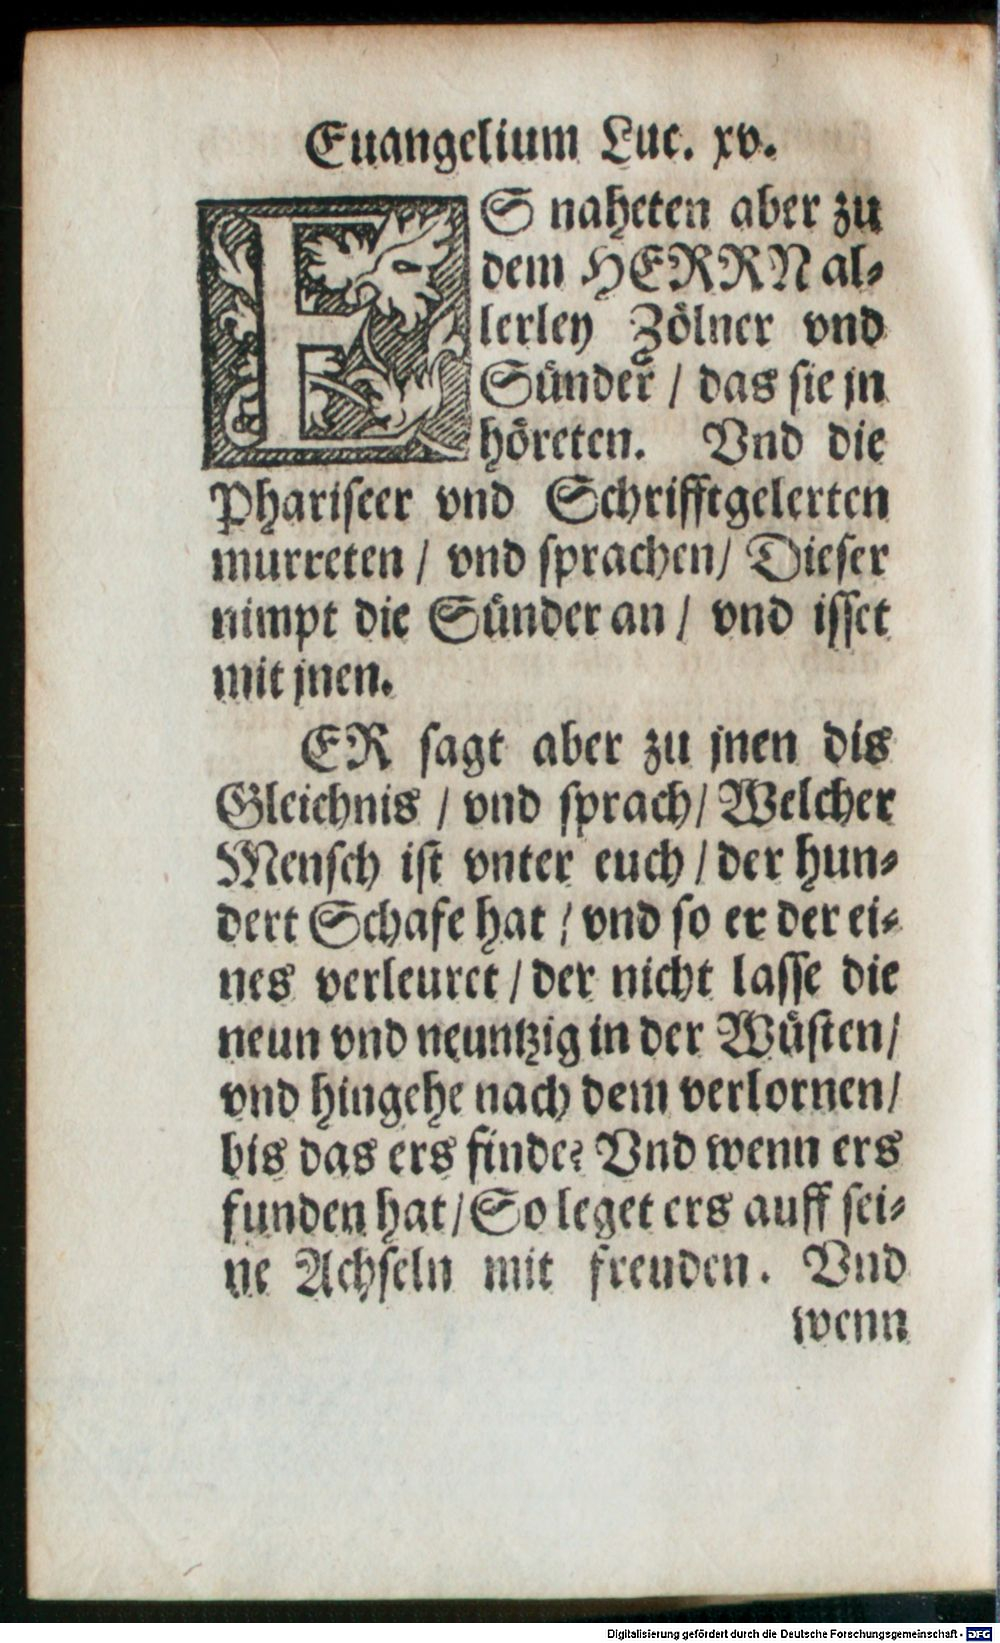 Euangelium Luc. xv.
ES naheten aber zu
dem HERRN al⸗
lerley Zölner vnd
Sünder / das sie jn
höreten. Vnd die
Phariseer vnd Schrifftgelerten
murreten / vnd sprachen / Dieser
nimpt die Sünder an / vnd isset
mit jnen.
ER sagt aber zu jnen dis
Gleichnis / vnd sprach / Welcher
Mensch ist vnter euch / der hun⸗
dert Schafe hat / vnd so er der ei⸗
nes verleuret / der nicht lasse die
neun vnd neuntzig in der Wüsten /
vnd hingehe nach dem verlornen /
bis das ers finde? Vnd wenn ers
funden hat / So leget ers auff sei⸗
ne Achseln mit freuden. Vnd
wenn
Digitalisierung gefördert durch die Deutsche Forschungsgemeinschaft - DFG